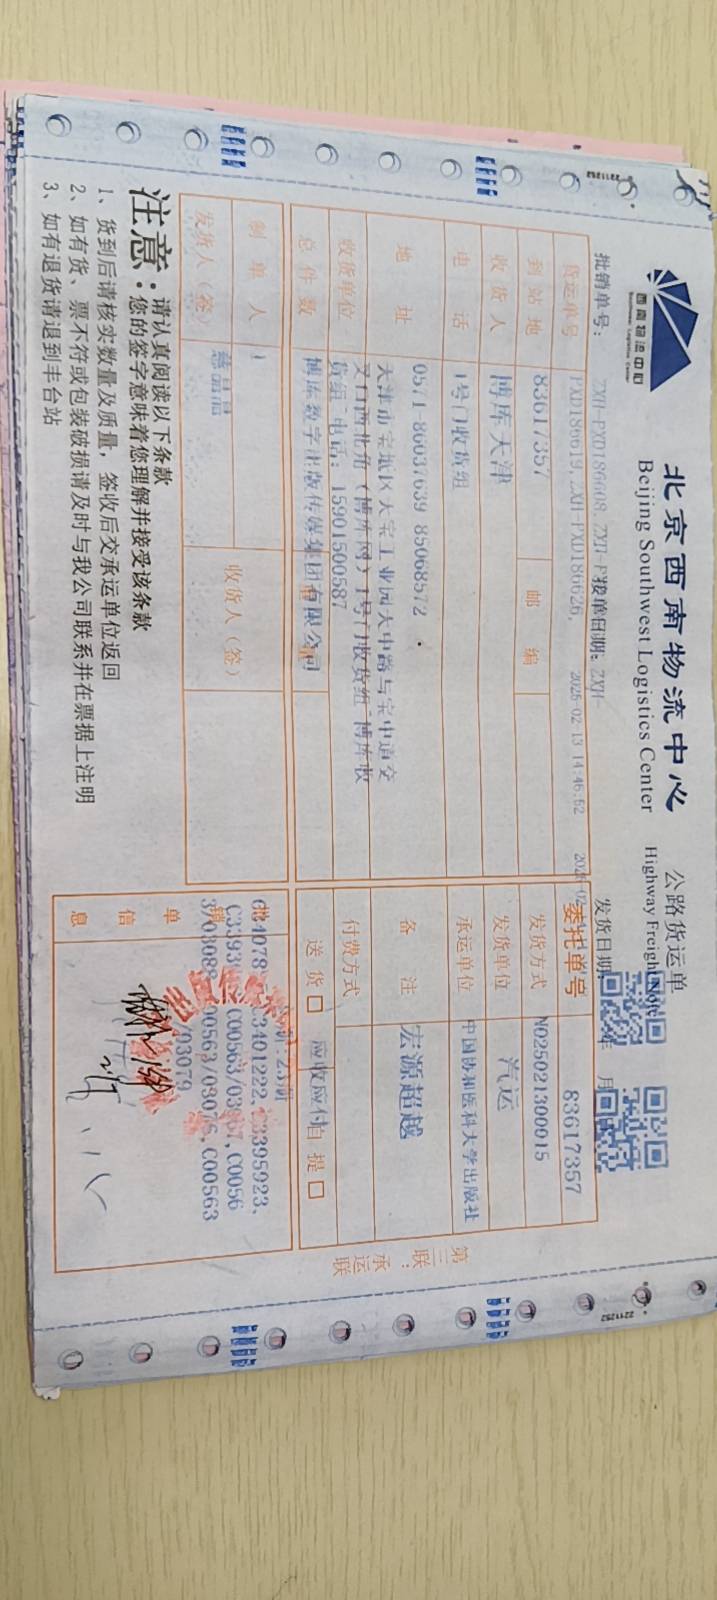 西南物流中心
Southwest Logistics Center
北京西南物流中心
Beijing Southwest Logistics Center
公路货运单
Highway Freight Note
批销单号:
ZXH-PXD186608, ZXH-P
接单日期:
ZXH
PXD186619, ZXH-PXD186626,
2025-02-13 14:46:52
发货日期
年 月
货运单号
83617357
委托单号
83617357
到站地
邮 编
发货方式
N025021300015
收货人
博库天津
发货单位
汽运
电 话
1号门收货组
承运单位
中国协和医科大学出版社
地 址
0571-86037639 85068572
天津市宝坻区天宝工业园天中路与宝中道交
叉口西北角(博库网)1号门收货组-博库收
货组-电话:15901500587
备 注
宏源超越
收货单位
博库数字出版传媒集团有限公司
付费方式
总件数
送 货 □
应收应付
自 提 □
制单人
1
发货人(签)
慧晶晶
收货人(签)
批销单信息
3401222,
3395923,
C0056
, C00563
/03079
注意:
请认真阅读以下条款
您的签字意味着您理解并接受该条款
1、货到后请核实数量及质量,签收后交承运单位返回
2、如有货、票不符或包装破损请及时与我公司联系并在票据上注明
3、如有退货请退到丰台站
第三联:承运联
2211252
2211252